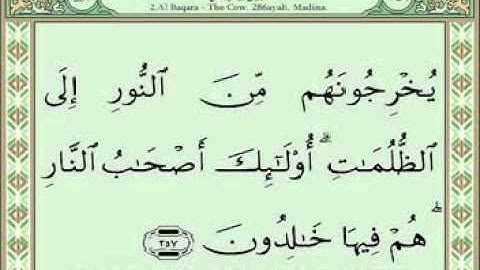 2.Al Baqara - The Cow. 286ayah. Madina.
يُخْرِجُونَهُم مِّنَ النُّورِ إِلَى
الظُّلُمَاتِ ۗ أُوْلَـٰٓئِكَ أَصْحَـٰبُ النَّارِ
ۖ هُمْ فِيهَا خَـٰلِدُونَ ﴿٢٥٧﴾